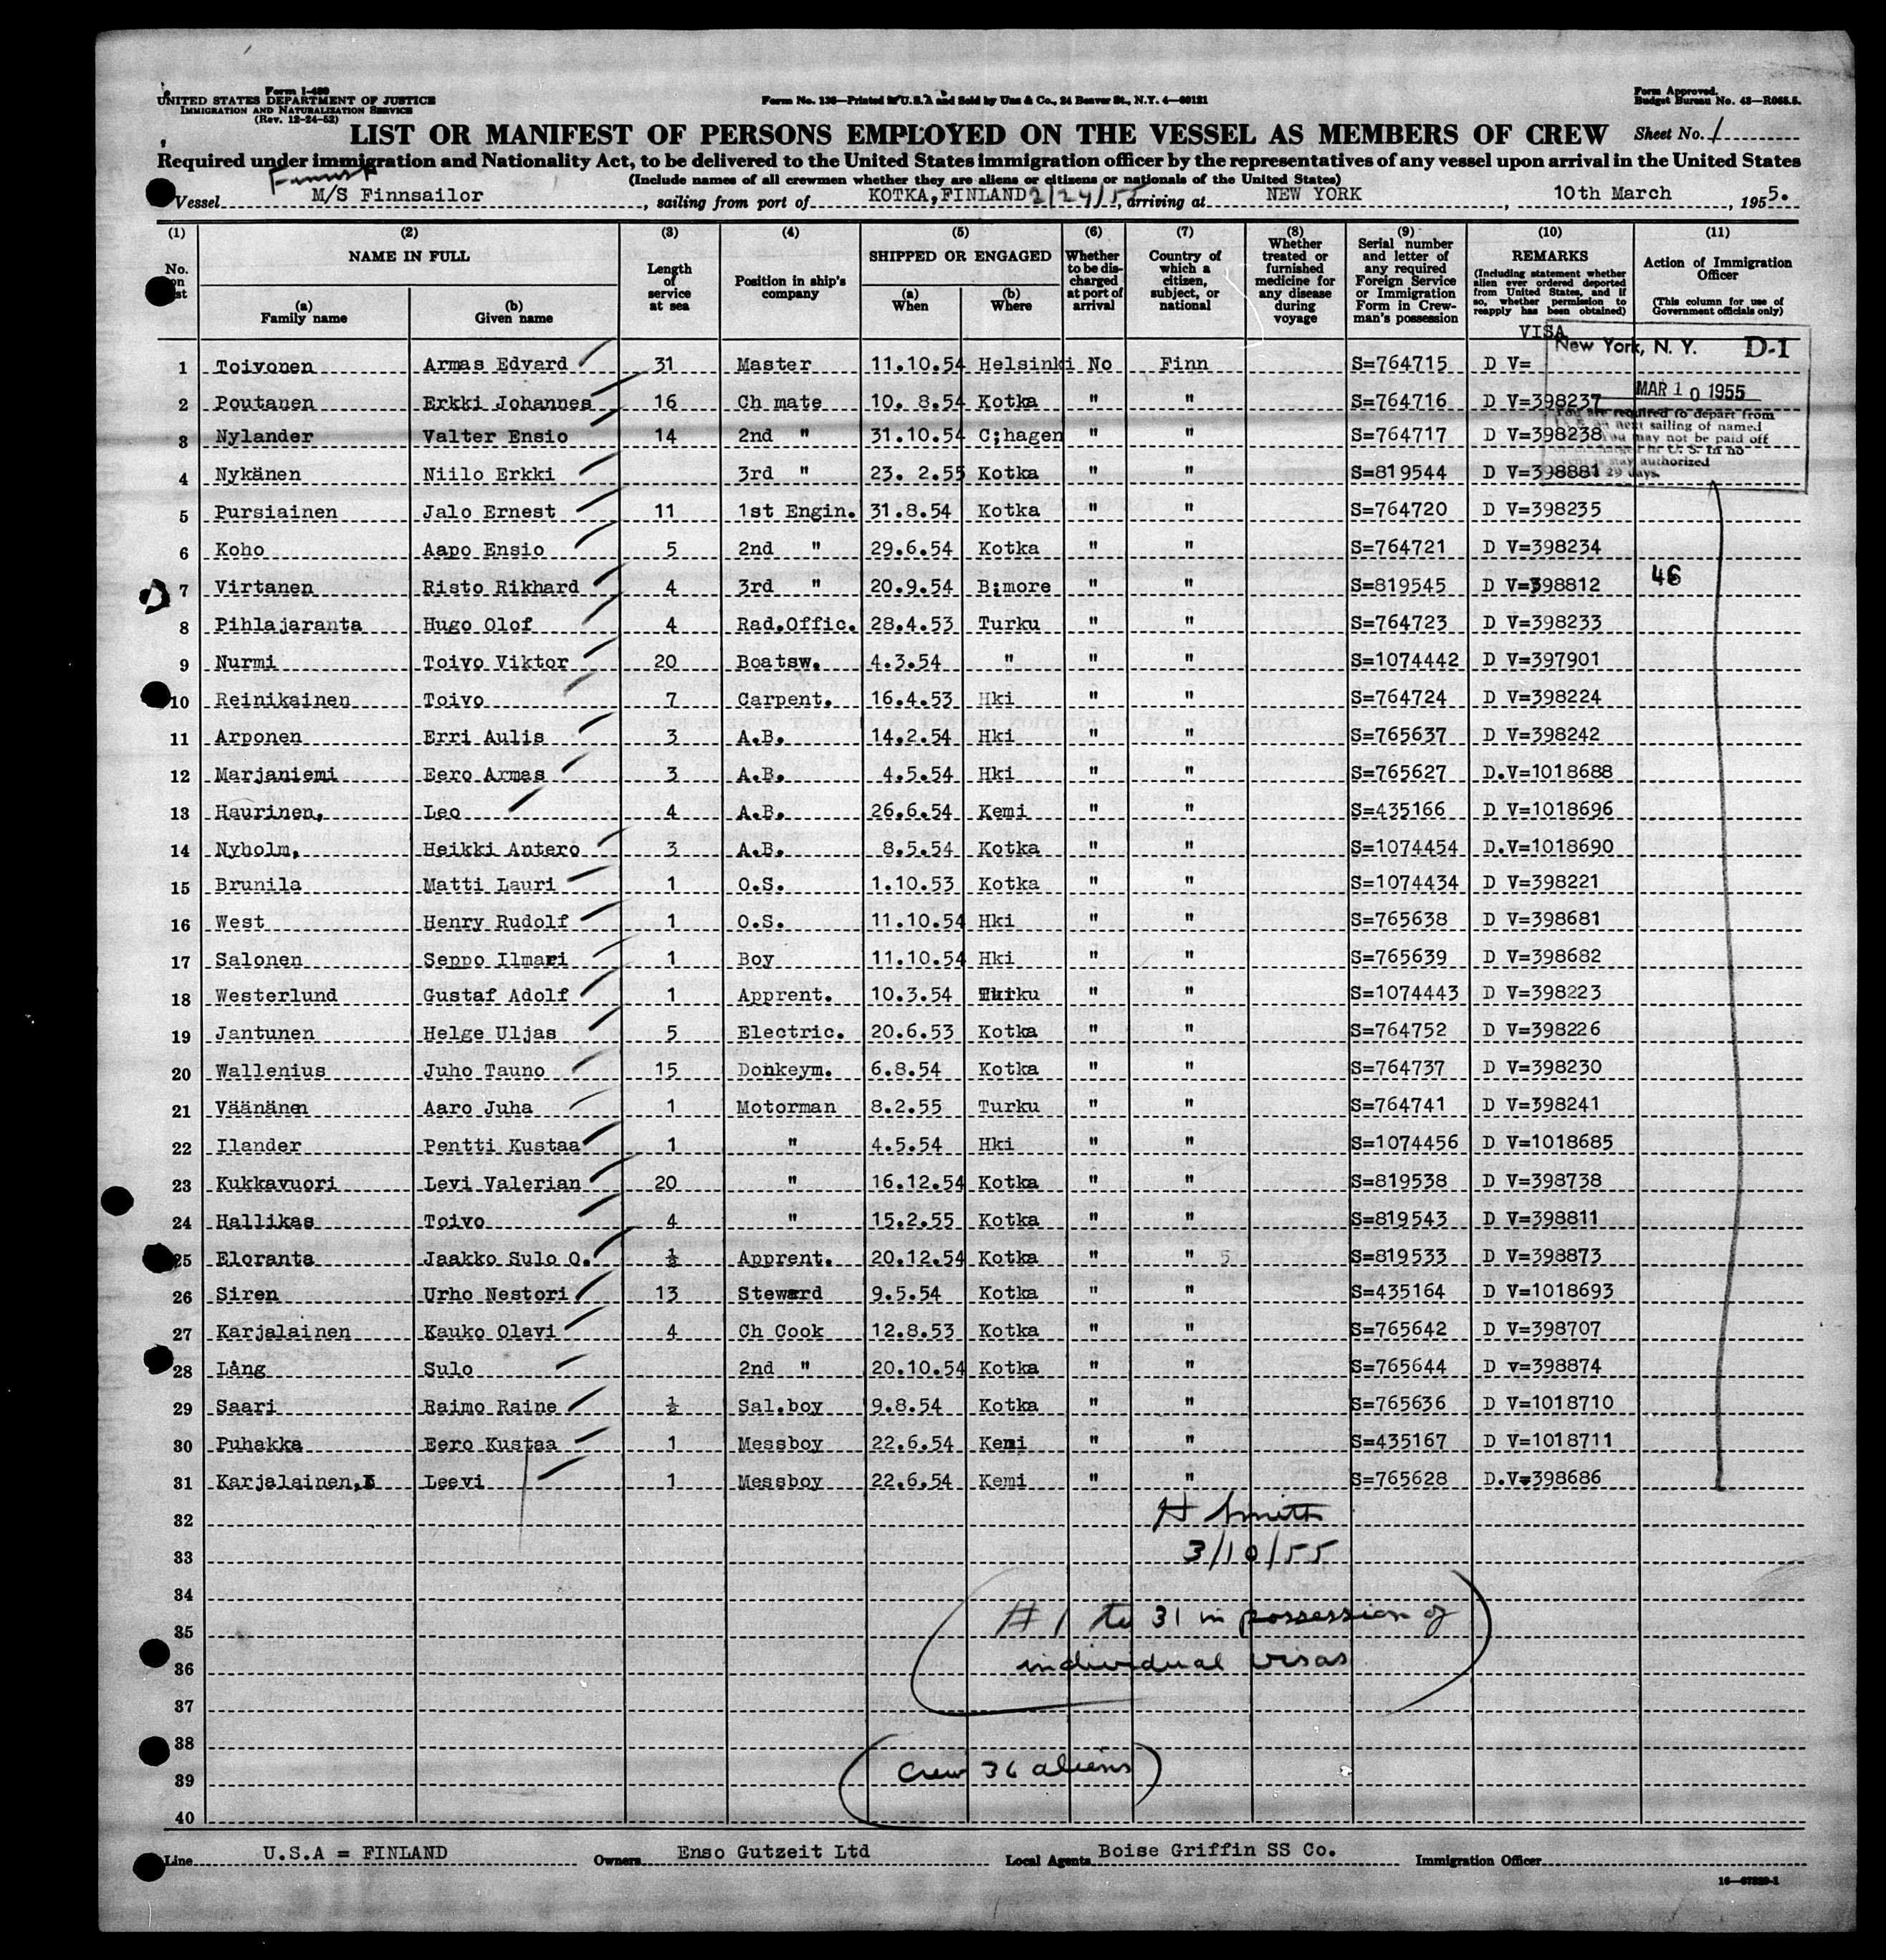 Form I-480
UNITED STATES DEPARTMENT OF JUSTICE
IMMIGRATION AND NATURALIZATION SERVICE
(Rev. 12-24-52)
Form No. 136—Printed in U.S.A and Sold by Unz & Co., 24 Beaver St., N.Y. 4—60121
Form Approved.
Budget Bureau No. 43—R065.5.
LIST OR MANIFEST OF PERSONS EMPLOYED ON THE VESSEL AS MEMBERS OF CREW Sheet No. 1
Required under immigration and Nationality Act, to be delivered to the United States immigration officer by the representatives of any vessel upon arrival in the United States
(Include names of all crewmen whether they are aliens or citizens or nationals of the United States)
Finnish
Vessel M/S Finnsailor, sailing from port of KOTKA, FINLAND 2/24/55, arriving at NEW YORK, 10th March, 1955.
(1) (2) (3) (4) (5) (6) (7) (8) (9) (10) (11)
No. on list
NAME IN FULL
(a) Family name
(b) Given name
Length of service at sea
Position in ship's company
SHIPPED OR ENGAGED
(a) When
(b) Where
Whether to be discharged at port of arrival
Country of which a citizen, subject, or national
Whether treated or furnished medicine for any disease during voyage
Serial number and letter of any required Foreign Service or Immigration Form in Crewman's possession
REMARKS
(Including statement whether alien ever ordered deported from United States, and if so, whether permission to reapply has been obtained)
Action of Immigration Officer
(This column for use of Government officials only)
VISA
New York, N. Y. D-1
MAR 10 1955
You are required to depart from
sailing of named
You may not be paid off
in U. S. In no
stay authorized
29 days.
1 Toivonen Armas Edvard 31 Master 11.10.54 Helsinki No Finn S=764715 D V=
2 Poutanen Erkki Johannes 16 Ch mate 10. 8.54 Kotka " " S=764716 D V=398237
3 Nylander Valter Ensio 14 2nd " 31.10.54 C;hagen " " S=764717 D V=398238
4 Nykänen Niilo Erkki 3rd " 23. 2.55 Kotka " " S=819544 D V=398881
5 Pursiainen Jalo Ernest 11 1st Engin. 31.8.54 Kotka " " S=764720 D V=398235
6 Koho Aapo Ensio 5 2nd " 29.6.54 Kotka " " S=764721 D V=398234
7 Virtanen Risto Rikhard 4 3rd " 20.9.54 B;more " " S=819545 D V=398812 46
8 Pihlajaranta Hugo Olof 4 Rad.Offic. 28.4.53 Turku " " S=764723 D V=398233
9 Nurmi Toivo Viktor 20 Boatsw. 4.3.54 " " " S=1074442 D V=397901
10 Reinikainen Toivo 7 Carpent. 16.4.53 Hki " " S=764724 D V=398224
11 Arponen Erri Aulis 3 A.B. 14.2.54 Hki " " S=765637 D V=398242
12 Marjaniemi Eero Armas 3 A.B. 4.5.54 Hki " " S=765627 D.V=1018688
13 Haurinen, Leo 4 A.B. 26.6.54 Kemi " " S=435166 D V=1018696
14 Nyholm, Heikki Antero 3 A.B. 8.5.54 Kotka " " S=1074454 D.V=1018690
15 Brunila Matti Lauri 1 O.S. 1.10.53 Kotka " " S=1074434 D V=398221
16 West Henry Rudolf 1 O.S. 11.10.54 Hki " " S=765638 D V=398681
17 Salonen Seppo Ilmari 1 Boy 11.10.54 Hki " " S=765639 D V=398682
18 Westerlund Gustaf Adolf 1 Apprent. 10.3.54 Turku " " S=1074443 D V=398223
19 Jantunen Helge Uljas 5 Electric. 20.6.53 Kotka " " S=764752 D V=398226
20 Wallenius Juho Tauno 15 Donkeym. 6.8.54 Kotka " " S=764737 D V=398230
21 Väänänen Aaro Juha 1 Motorman 8.2.55 Turku " " S=764741 D V=398241
22 Ilander Pentti Kustaa 1 " 4.5.54 Hki " " S=1074456 D V=1018685
23 Kukkavuori Levi Valerian 20 " 16.12.54 Kotka " " S=819538 D V=398738
24 Hallikas Toivo 4 " 15.2.55 Kotka " " S=819543 D V=398811
25 Eloranta Jaakko Sulo O. ½ Apprent. 20.12.54 Kotka " " 5 S=819533 D V=398873
26 Siren Urho Nestori 13 Steward 9.5.54 Kotka " " S=435164 D V=1018693
27 Karjalainen Kauko Olavi 4 Ch Cook 12.8.53 Kotka " " S=765642 D V=398707
28 Lång Sulo 2nd " 20.10.54 Kotka " " S=765644 D v=398874
29 Saari Raimo Raine ½ Sal.boy 9.8.54 Kotka " " S=765636 D V=1018710
30 Puhakka Eero Kustaa 1 Messboy 22.6.54 Kemi " " S=435167 D V=1018711
31 Karjalainen, Leevi 1 Messboy 22.6.54 Kemi " " S=765628 D.V=398686
32 H Smith
33 3/10/55
34
35 # 1 to 31 in possession of
36 individual visas
37
38
39 Crew 36 aliens
40
Line U.S.A = FINLAND Owners Enso Gutzeit Ltd Local Agents Boise Griffin SS Co. Immigration Officer
16—67829-1